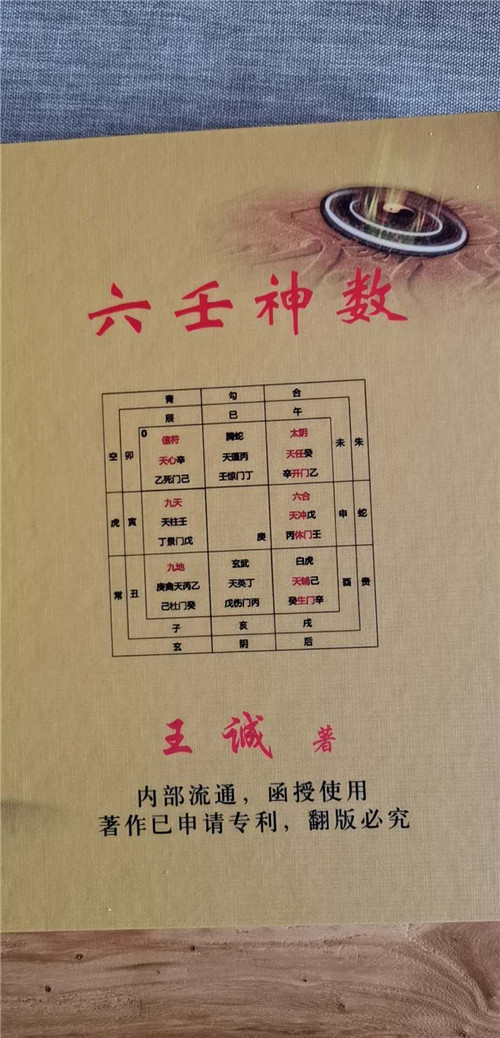 六壬神数
青 勾 合
辰 巳 午
0
空 卯 值符 腾蛇 太阴 未 朱
天心辛 天蓬丙 天任癸
乙死门己 壬惊门丁 辛开门乙
虎 寅 九天 六合 申 蛇
天柱壬 天冲戊
丁景门戊 庚 丙休门壬
常 丑 九地 玄武 白虎 酉 贵
庚禽天芮乙 天英丁 天辅己
己杜门癸 戊伤门丙 癸生门辛
子 亥 戌
玄 阴 后
王诚 著
内部流通，函授使用
著作已申请专利，翻版必究